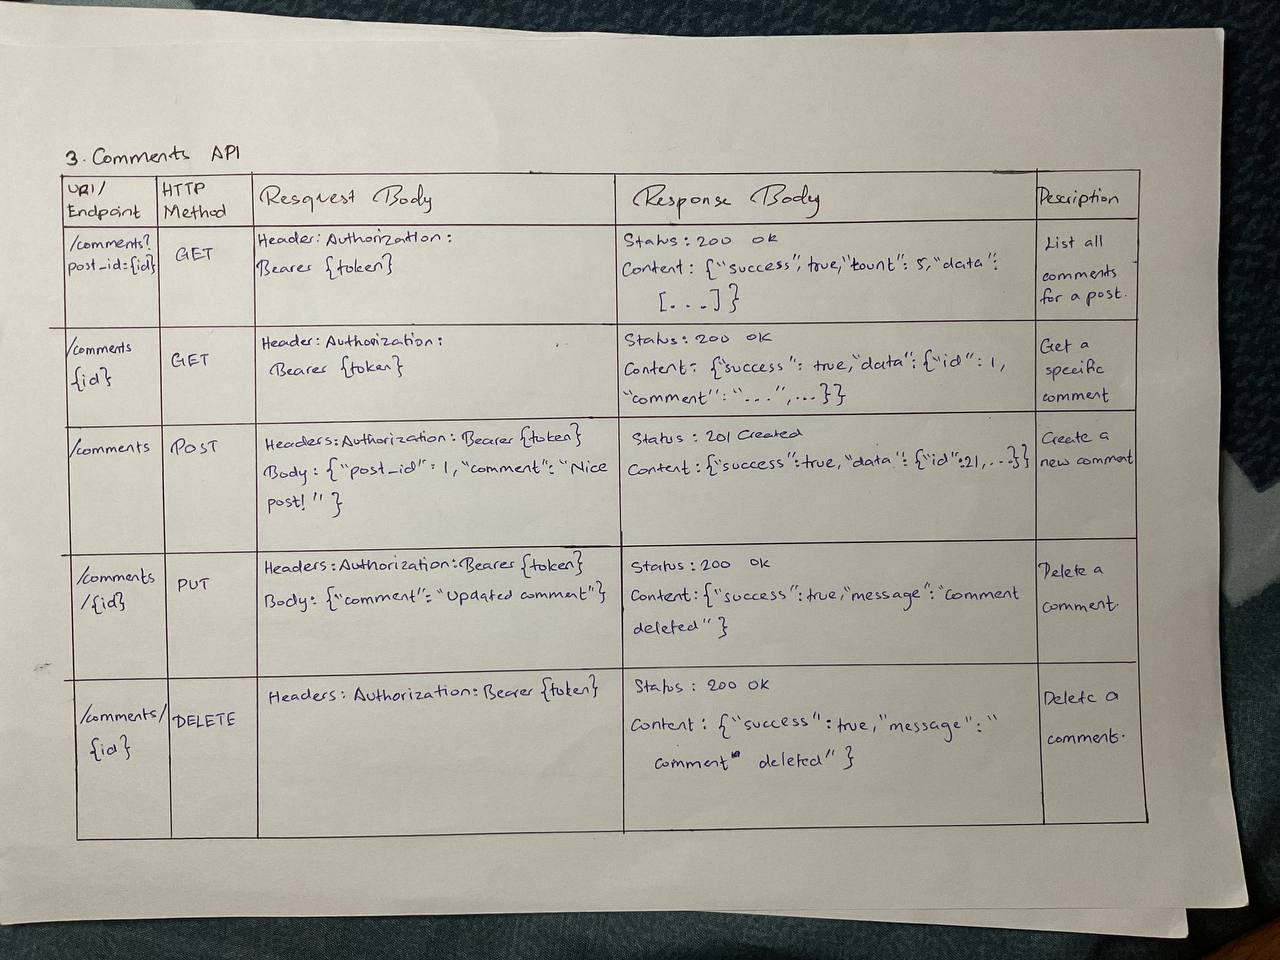 3. Comments API
URI/
Endpoint
HTTP
Method
Resquest Body
Response Body
Description
/comments?
post_id={id}
GET
Header: Authorization:
Bearer {token}
Status: 200 ok
Content: {"success", true, "count": 5, "data":
[...]}
List all
comments
for a post.
/comments
{id}
GET
Header: Authorization:
Bearer {token}
Status: 200 OK
Content: {"success": true, "data": {"id": 1,
"comment": "...", ...}}
Get a
specific
comment
/comments
POST
Headers: Authorization: Bearer {token}
Body: {"post_id": 1, "comment": "Nice
post!"}
Status: 201 Created
Content: {"success": true, "data": {"id": 21, ...}}
Create a
new comment
/comments
/{id}
PUT
Headers: Authorization: Bearer {token}
Body: {"comment": "Updated comment"}
Status: 200 OK
Content: {"success": true, "message": "comment
deleted"}
Delete a
comment.
/comments/
{id}
DELETE
Headers: Authorization: Bearer {token}
Status: 200 OK
Content: {"success": true, "message": "
comment" deleted"}
Delete a
comment.